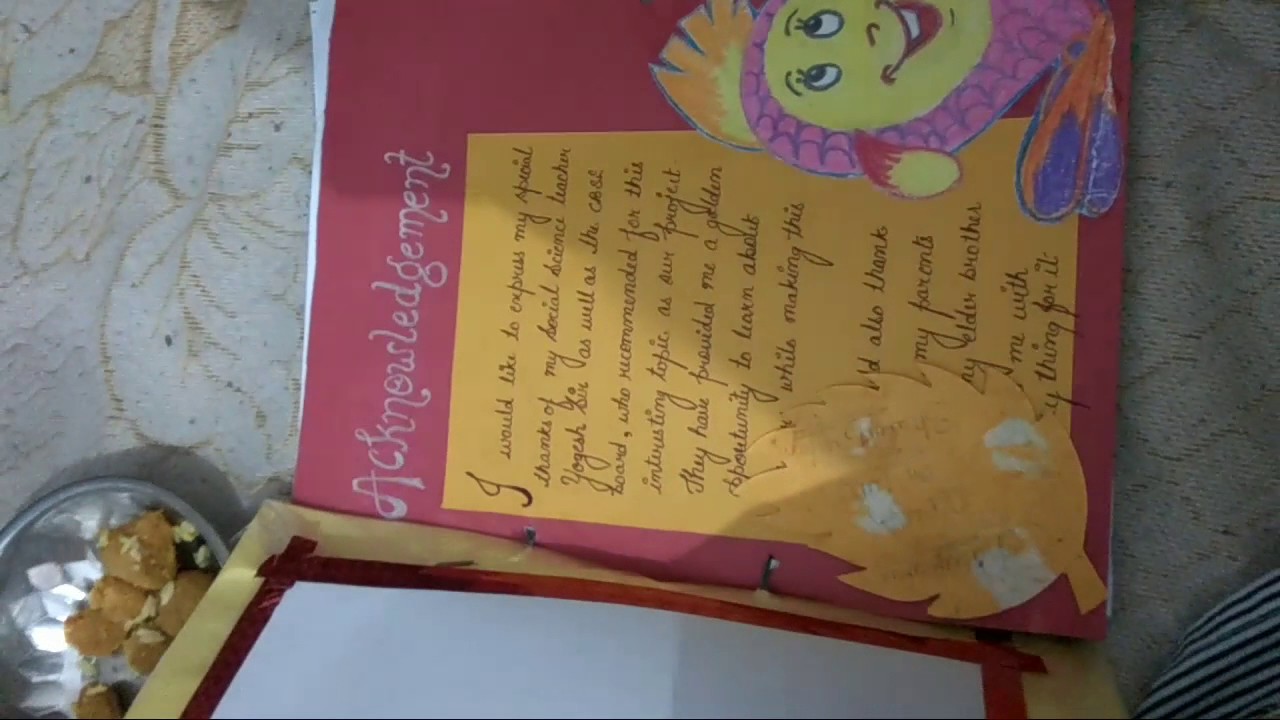 Acknowledgement
I would like to express my special
thanks of my Social Science teacher
Yogesh Sir as well as the CBSE
board, who recommended for this
interesting topic as our project.
They have provided me a golden
opportunity to learn about
while making this
also thank
my parents
elder brother
me with
thing for it